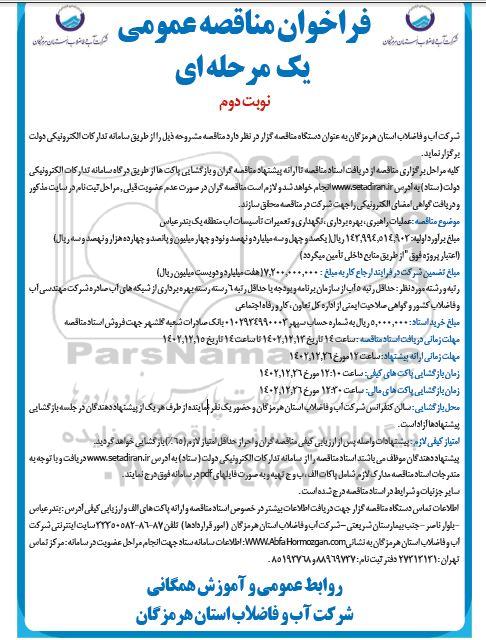 فراخوان مناقصه عمومی
یک مرحله ای
نوبت دوم
شرکت آب و فاضلاب استان هرمزگان
شرکت آب و فاضلاب استان هرمزگان
شرکت آب و فاضلاب استان هرمزگان به عنوان دستگاه مناقصه گزار در نظر دارد مناقصه مشروحه ذیل را از طریق سامانه تدارکات الکترونیکی دولت
برگزار نماید.
کلیه مراحل برگزاری مناقصه از دریافت اسناد مناقصه تا ارائه پیشنهاد مناقصه گران و بازگشایی پاکت ها از طریق درگاه سامانه تدارکات الکترونیکی
دولت (ستاد) به آدرس www.setadiran.ir انجام خواهد شد و لازم است مناقصه گران در صورت عدم عضویت قبلی، مراحل ثبت نام در سایت مذکور
و دریافت گواهی امضای الکترونیکی را جهت شرکت در مناقصه محقق سازند.
موضوع مناقصه: عملیات راهبری، بهره برداری، نگهداری و تعمیرات تأسیسات آب منطقه یک بندرعباس
مبلغ برآورد اولیه: ۱۴۳,۹۹۴,۵۱۴,۹۰۳ ریال( یکصد و چهل و سه میلیارد و نهصد و نود و چهار میلیون و پانصد و چهارده هزار و نهصد و سه ریال)
(اعتبار پروژه فوق "از طریق منابع داخلی تأمین میگردد)
مبلغ تضمین شرکت در فرایند ارجاع کار به مبلغ : ۷,۲۰۰,۰۰۰,۰۰۰ (هفت میلیارد و دویست میلیون ریال)
رتبه و رشته مورد نظر : حداقل رتبه ۵ آب از سازمان برنامه و بودجه یا حداقل رتبه ۶ رسته رسته بهره برداری از شبکه های آب صادره شرکت مهندسی آب
و فاضلاب کشور و گواهی صلاحیت ایمنی از اداره کل تعاون، کار و رفاه اجتماعی
مبلغ خرید اسناد: ۵,۰۰۰,۰۰۰ ریال به شماره حساب سپهر ۰۱۰۲۹۳۴۹۹۰۰۰۲ بانک صادرات شعبه گلشهر جهت فروش اسناد مناقصه
مهلت زمانی دریافت اسناد مناقصه : ساعت ۱۴ تاریخ ۱۴۰۲,۱۲,۱۳ تا ساعت ۱۴ تاریخ ۱۴۰۲,۱۲,۱۵
مهلت زمانی ارائه پیشنهاد: ساعت ۱۲ مورخ ۱۴۰۲,۱۲,۲۶
زمان بازگشایی پاکت های کیفی: ساعت ۱۲:۱۰ مورخ ۱۴۰۲,۱۲,۲۶
زمان بازگشایی پاکت های مالی: ساعت ۱۲:۳۰ مورخ ۱۴۰۲,۱۲,۲۶
محل بازگشایی: سالن کنفرانس شرکت آب و فاضلاب استان هرمزگان و حضور یک نفر نماینده از طرف هر یک از پیشنهاد دهندگان در جلسه بازگشایی
پیشنهادها آزاد است.
امتیاز کیفی لازم : پیشنهادات واصله پس از ارزیابی کیفی مناقصه گران و احراز حداقل امتیاز لازم (۶۵٪) بازگشایی خواهد گردید.
پیشنهاد دهندگان موظف می باشند اسناد مناقصه را از سامانه تدارکات الکترونیکی دولت (ستاد) به آدرس www.setadiran.ir دریافت و با توجه به
مندرجات اسناد مناقصه مدارک لازم شامل پاکات الف، ب و ج تهیه و به صورت فایلهای pdf در سامانه فوق درج نمایند.
سایر جزئیات و شرایط در اسناد مناقصه درج شده است.
اطلاعات تماس دستگاه مناقصه گزار جهت دریافت اطلاعات بیشتر در خصوص اسناد مناقصه و ارائه پاکت های الف و ارزیابی کیفی آدرس : بندرعباس
-بلوار ناصر - جنب بیمارستان شریعتی - شرکت آب و فاضلاب استان هرمزگان (امور قراردادها) تلفن ۸۷-۸۶-۳۳۳۵۰۵۸۲ سایت اینترنتی شرکت
آب و فاضلاب استان هرمزگان به نشانی WWW.AbfaHormozgan.com: اطلاعات سامانه ستاد جهت انجام مراحل عضویت در سامانه : مرکز تماس
تهران: ۲۷۳۱۳۱۳۱ دفتر ثبت نام : ۸۸۹۶۹۷۳۷ و ۸۵۱۹۳۷۶۸ .
روابط عمومی و آموزش همگانی
شرکت آب و فاضلاب استان هرمزگان